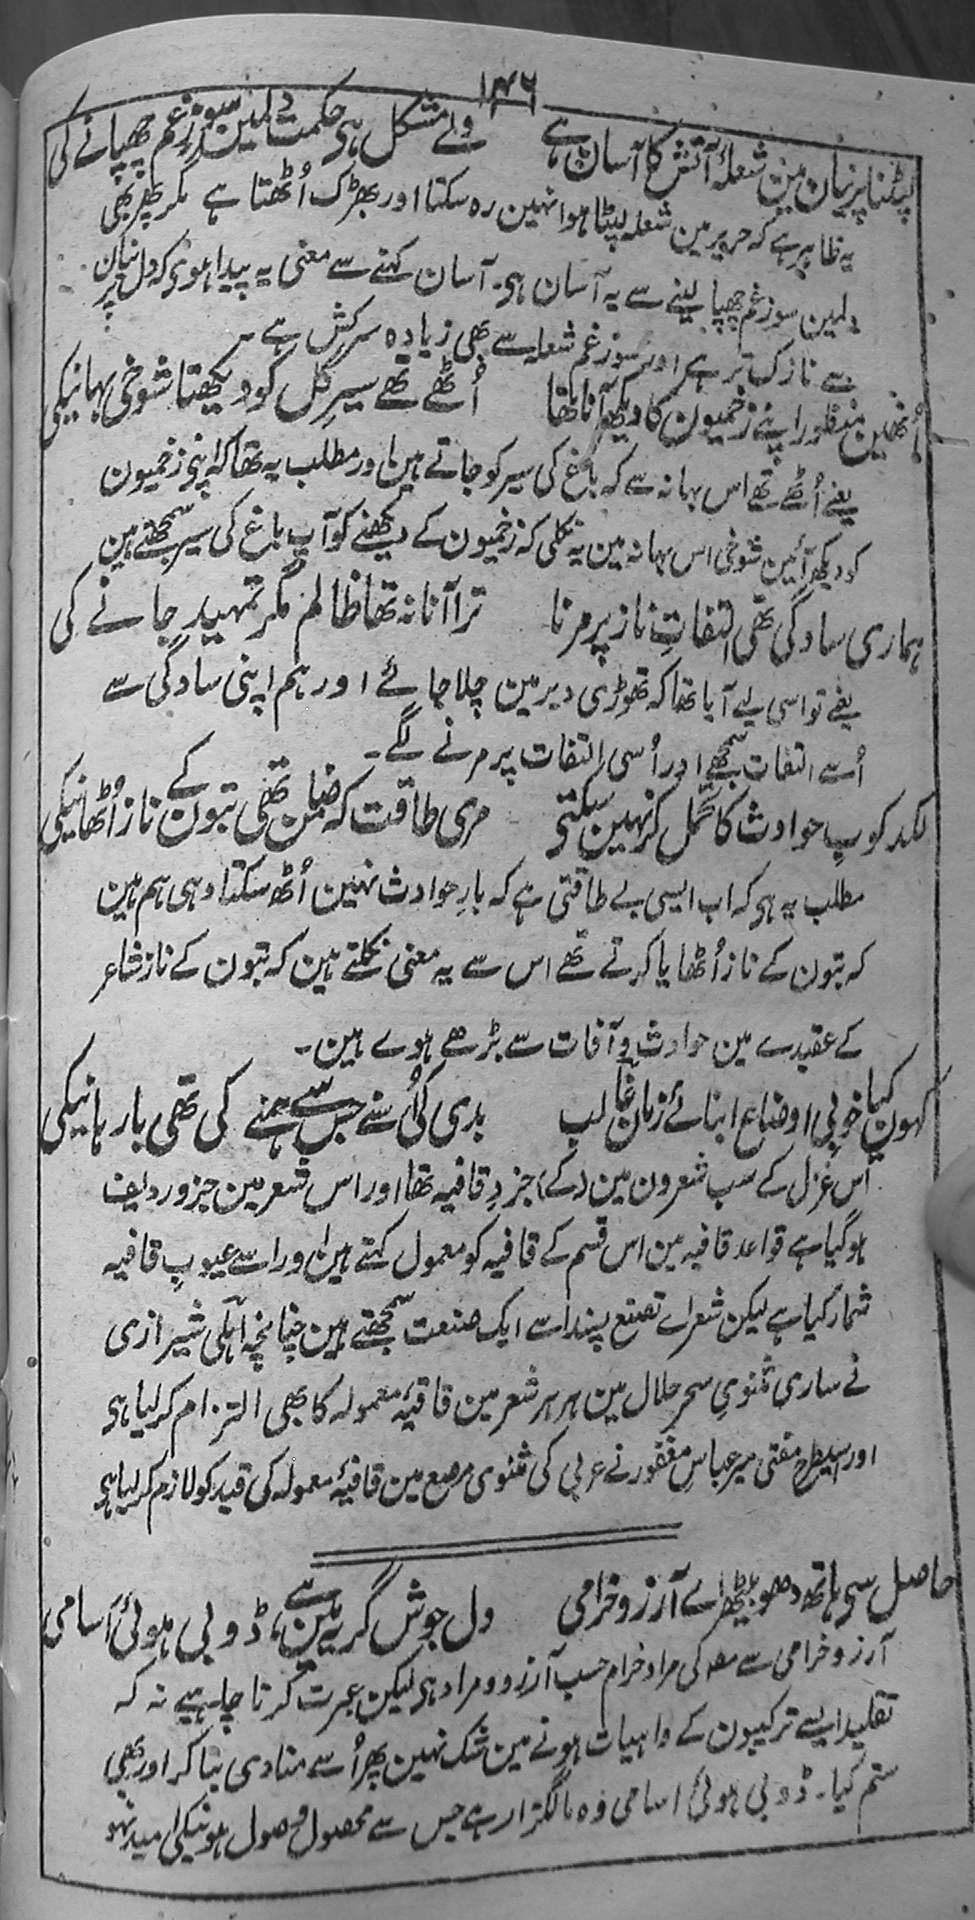 ۱۴۶
لپٹنا پرنیان مین شعلۂ آتش کا آسان ہے ولے مشکل ہی حکمت دلمین سوزِ غم چھپانے کی
یہ ظاہر ہے کہ حریر مین شعلہ لپٹا ہوا نہین رہ سکتا اور بھڑک اُٹھتا ہے مگر پھر بھی
دلمین سوزغم چھپا لینے سے یہ آسان ہی۔ آسان کہنے سے معنی یہ پیدا ہوی کہ دل پرنیان
سے نازک تر ہے اور سوزغم شعلہ سے بھی زیادہ سرکش ہے۔
اُنھین منظور اپنے زخمیون کا دیکھ آنا تھا اُٹھے تھے سیرِ گل کو دیکھنا شوخی بہانیکی
یعنے اُٹھے تھے اس بہانہ سے کہ باغ کی سیر کو جاتے ہین اور مطلب یہ تھا کہ اپنی زخمیون
کو دیکھ آئین شوخی اس بہانہ مین یہ نکلی کہ زخمیون کے دیکھنے کو آپ باغ کی سیر سمجھتے ہین
ہماری سادگی تھی التفاتِ ناز پر مرنا ترا آنا نہ تھا ظالم مگر تمہید جانے کی
یعنے تو اسی لیے آیا تھا کہ تھوڑی دیر مین چلا جائے اور ہم اپنی سادگی سے
اُسے التفات سمجھے اور اُسی التفات پر مرنے لگے۔
لکد کوبِ حوادث کا تحمل کر نہین سکتی مری طاقت کہ ضامن تھی بتون کے ناز اُٹھانیکی
مطلب یہ ہی کہ اب ایسی بے طاقتی ہے کہ بارِ حوادث نہین اُٹھ سکتا وہی ہم ہین
کہ بتون کے ناز اُٹھایا کرتے تھے اس سے یہ معنی نکلتے ہین کہ بتون کے ناز شاعر
کے عقیدے مین حوادث و آفات سے بڑھے ہوے ہین۔
کہون کیا خوبیِ اوضاعِ ابنائے زمان غالب بدی کی اُسنے جس سے ہمنے کی تھی بارہا نیکی
اس غزل کے سب شعرون مین (کے) جزوِ قافیہ تھا اور اس شعر مین جزو ردیف
ہوگیا ہے قواعد قافیہ مین اس قسم کے قافیہ کو معمول کہتے ہین اور اسے عیوبِ قافیہ
شمار کیا ہے لیکن شعراے تصنع پسند اسے ایک صنعت سمجھتے ہین چنانچہ اہلی شیرازی
نے ساری مثنویِ سحر حلال مین ہر ہر شعر مین قافیۂ معمولہ کا بھی التزام کر لیا ہی
اور اسیطرح مفتی میر عباس مغفور نے عربی کی مثنوی مرصع مین قافیۂ معمولہ کی قید کو لازم کر لیا ہی
حاصل سی ہاتھ دھو بیٹھ اے آرزو خرامی دل جوشِ گریہ مین ہے ڈوبی ہوئی اسامی
آرزو خرامی سے مصہ کی مراد خرام حسب آرزو و مراد ہی لیکن عبرت کرنا چاہیے نہ کہ
تقلید ایسے ترکیبون کے واہیات ہونے مین شک نہین پھر اُسے منادی بنا کر اور بھی
ستم کیا۔ ڈوبی ہوئی اسامی وہ مالگزار ہے جس سے محصول وصول ہونیکی امید نہو